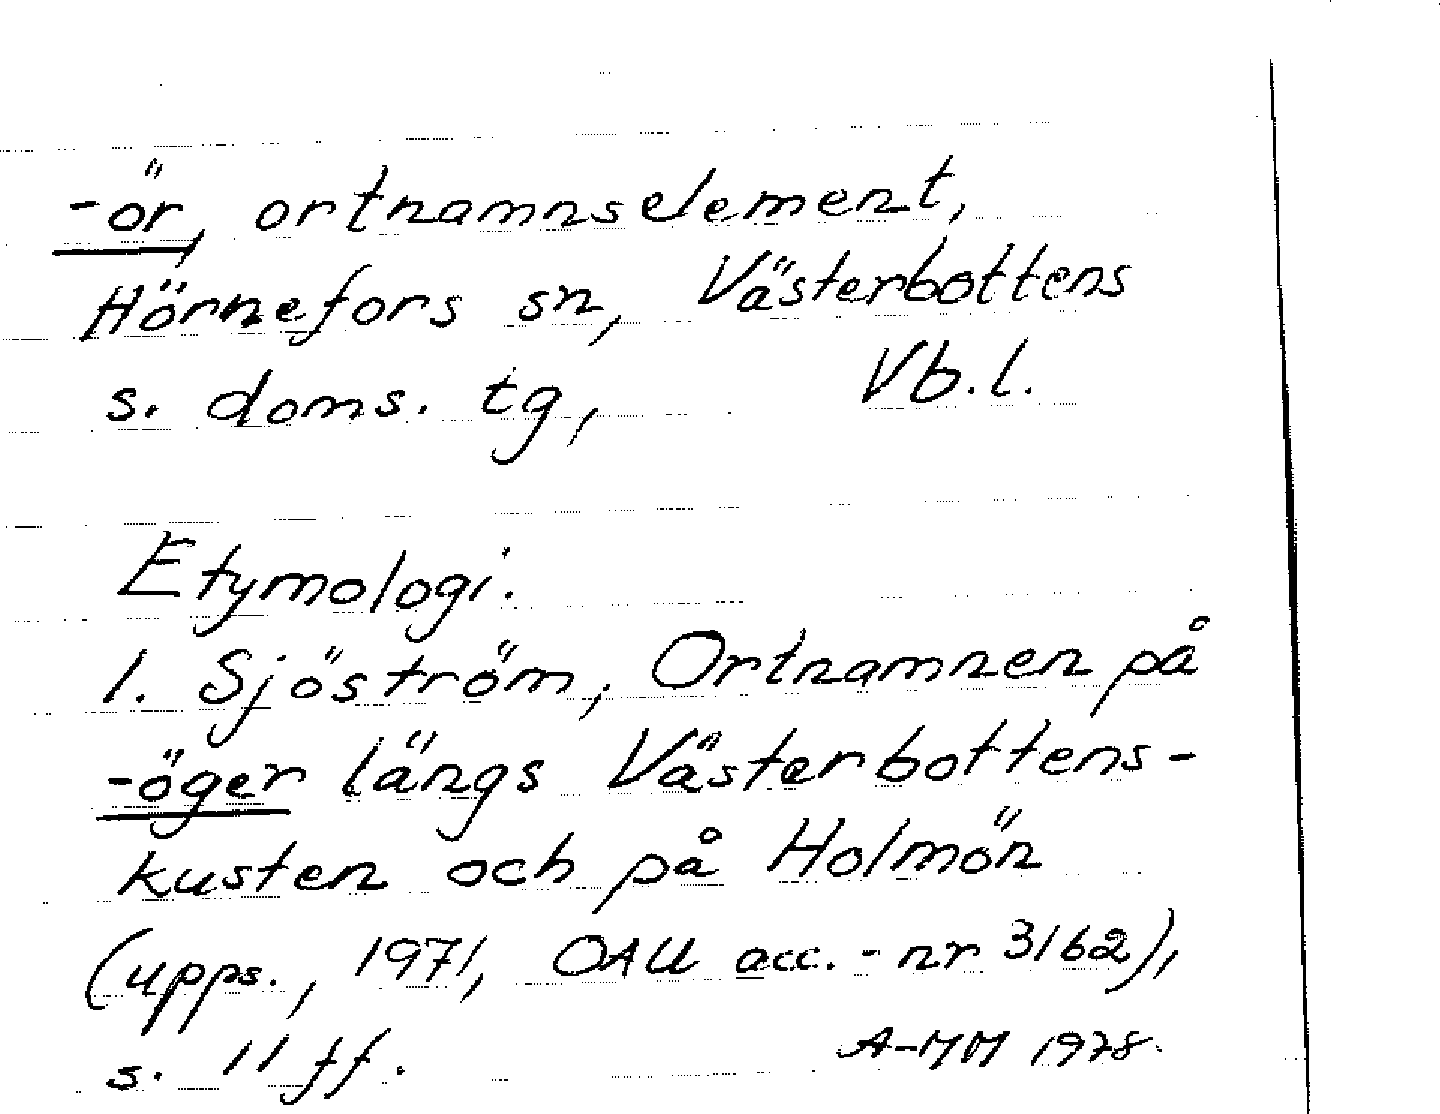 -ör, ortnamnselement,
Hörnefors sn, Västerbottens
s. doms. tg, Vb.l.
Etymologi.
1. Sjöström, Ortnamnen på
-öger längs Västerbottens-
kusten och på Holmön
(upps., 1971, OAU acc.-nr 3162),
s. 11 ff. A-MM 1978.